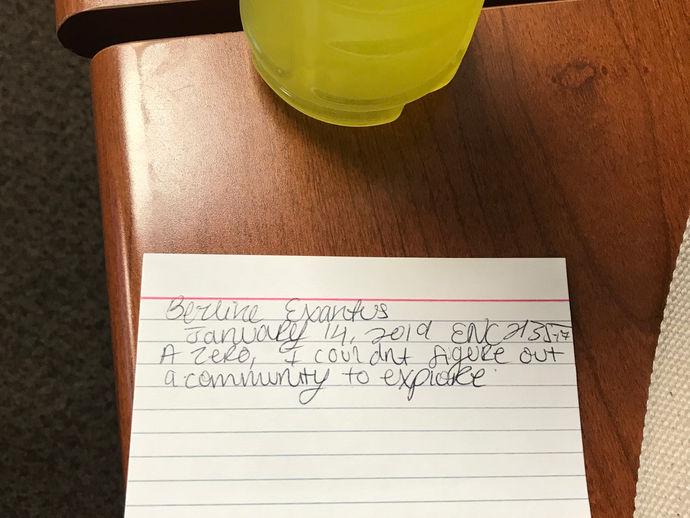 Berline Exantus
January 14, 2019 ENC 2135-17
A zero, I couldnt figure out
a community to explore.